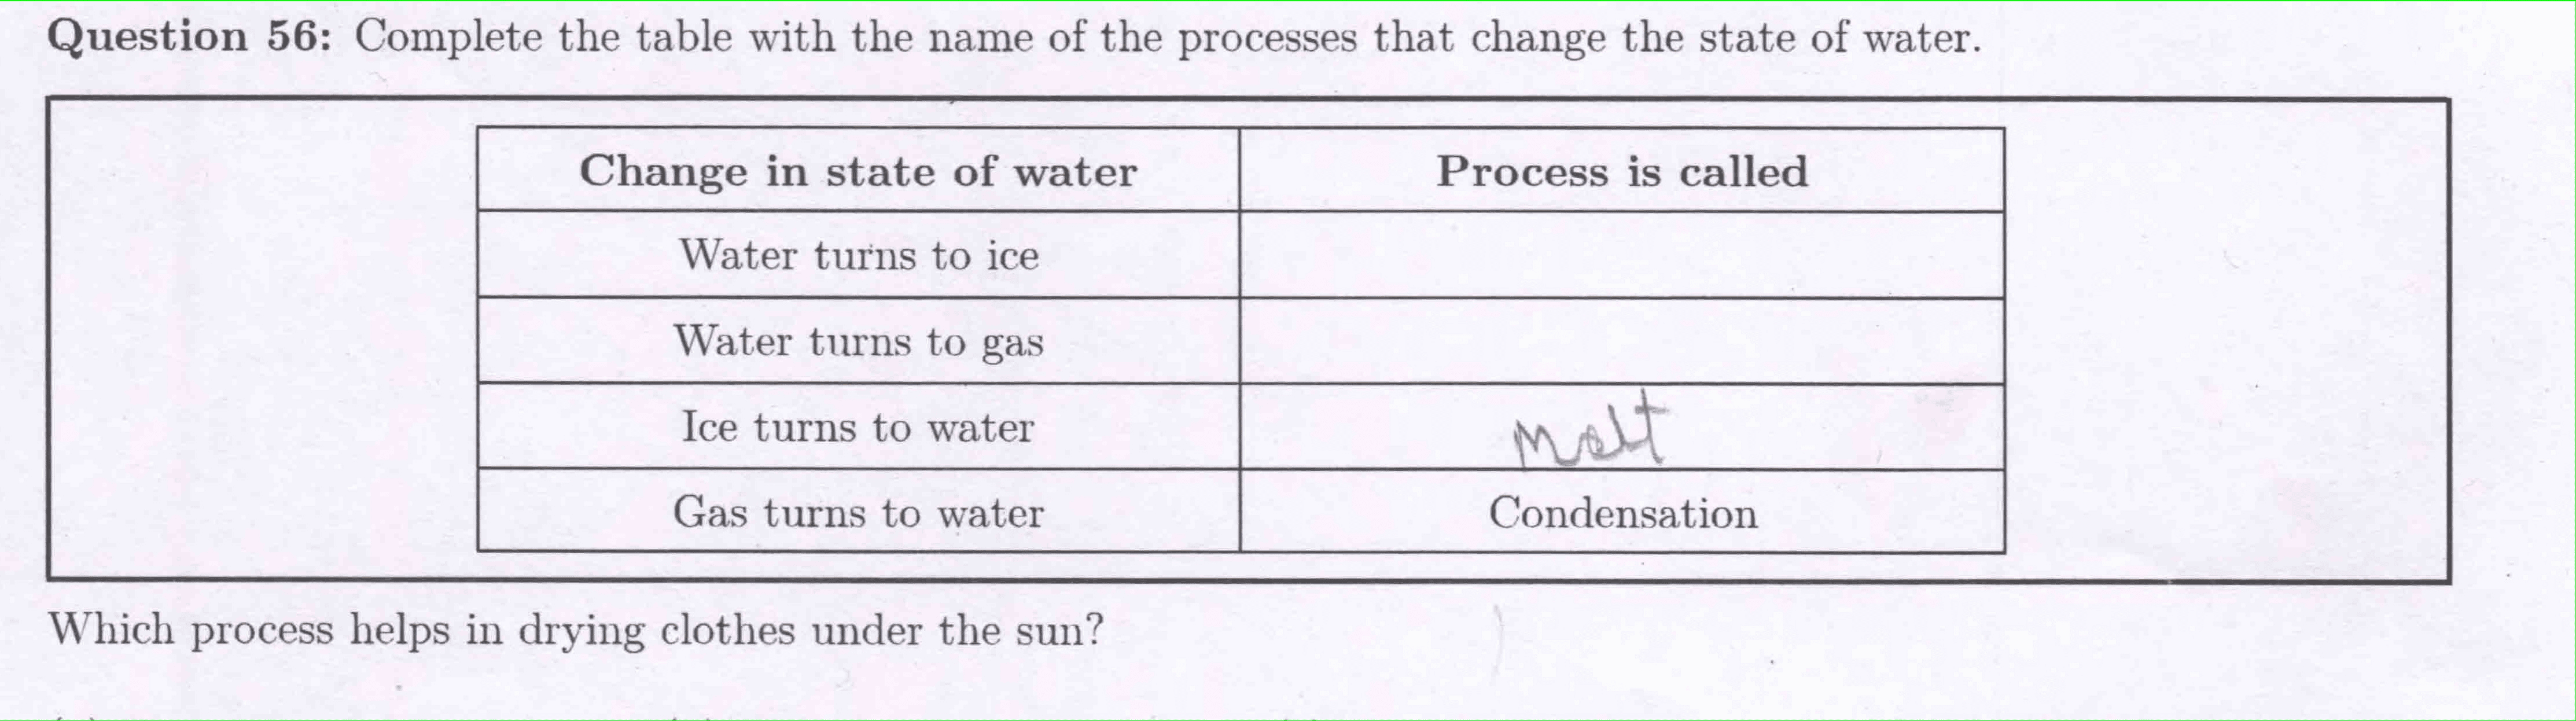 Question 56: Complete the table with the name of the processes that change the state of water.
Change in state of water Process is called
Water turns to ice
Water turns to gas
Ice turns to water Melt
Gas turns to water Condensation
Which process helps in drying clothes under the sun?